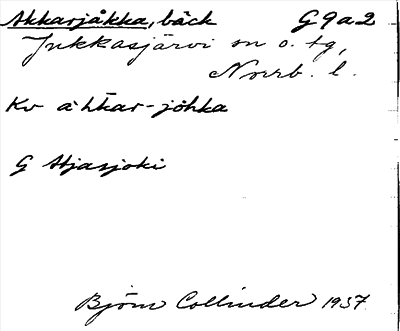 Akkarjåkka, bäck G9a2
Jukkasjärvi sn o. tg,
Norrb. l.
Kv a·htkar-johka
G Atjasjoki
Björn Collinder 1957